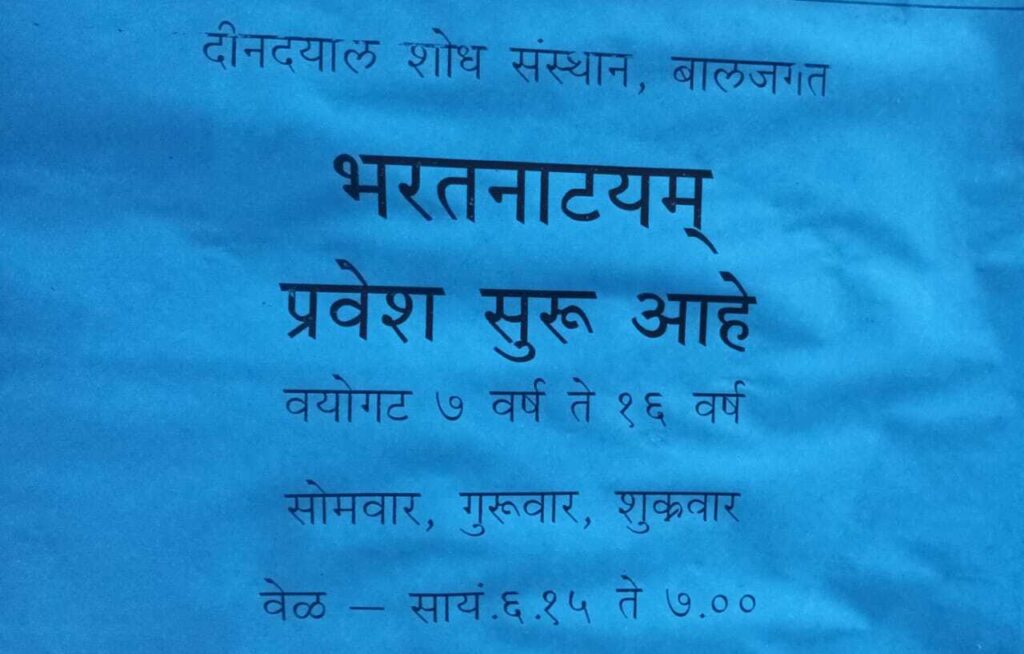 दीनदयाल शोध संस्थान, बालजगत
भरतनाटयम्
प्रवेश सुरू आहे
वयोगट ७ वर्ष ते १६ वर्ष
सोमवार, गुरूवार, शुक्रवार
वेळ – सायं.६.१५ ते ७.००